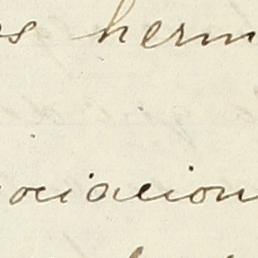 s herm
ociacion